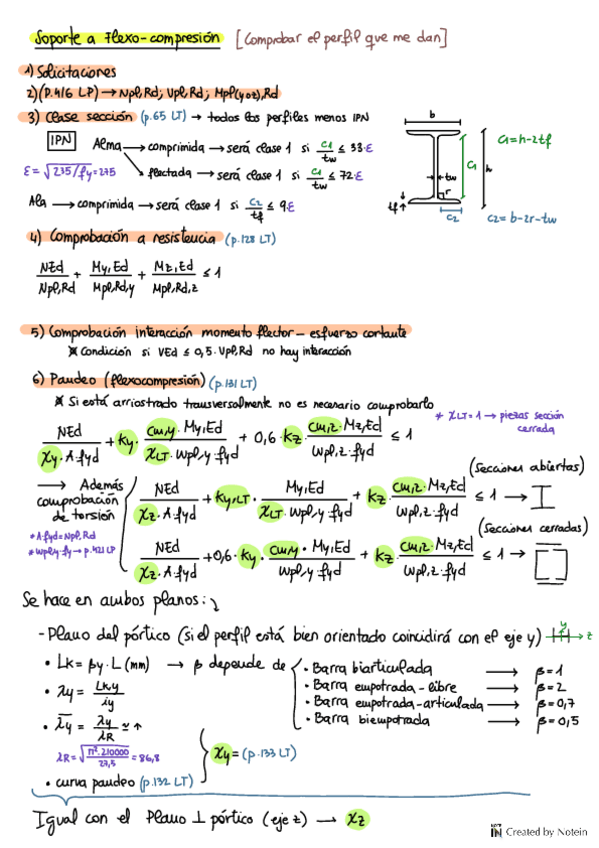 Soporte a Flexo-compresión [Comprobar el perfil que me dan]
1) Solicitaciones
2) (P.416 LP) → Npl,Rd; Vpl,Rd; Mpl(y o z),Rd
3) Clase sección (p.65 LT) → todos los perfiles menos IPN
IPN Alma → comprimida → será clase 1 si c1/tw ≤ 33·ε
ε = √235/fy = 275 → flectada → será clase 1 si c1/tw ≤ 72·ε
Ala → comprimida → será clase 1 si c2/tf ≤ 9·ε
b
c1 = h-2tf
tw c1 h
r
tf
c2 c2 = b-2r-tw
4) Comprobación a resistencia (p.128 LT)
NEd/Npl,Rd + My,Ed/Mpl,Rd,y + Mz,Ed/Mpl,Rd,z ≤ 1
5) Comprobación interacción momento flector - esfuerzo cortante
* Condición si VEd ≤ 0,5·Vpl,Rd no hay interacción
6) Pandeo (flexocompresión) (p.131 LT)
* Si está arriostrado transversalmente no es necesario comprobarlo
* χLT = 1 → piezas sección cerrada
NEd/χy·A·fyd + ky · cm,y·My,Ed/χLT·Wpl,y·fyd + 0,6·kz · cm,z·Mz,Ed/Wpl,z·fyd ≤ 1
(Secciones abiertas)
→ Además comprobación de torsión
NEd/χz·A·fyd + ky,LT · My,Ed/χLT·Wpl,y·fyd + kz · cm,z·Mz,Ed/Wpl,z·fyd ≤ 1 →
* A·fyd = Npl,Rd
* Wpl,y·fy → p.421 LP
(Secciones cerradas)
NEd/χz·A·fyd + 0,6·ky · cm,y·My,Ed/Wpl,y·fyd + kz · cm,z·Mz,Ed/Wpl,z·fyd ≤ 1 →
Se hace en ambos planos:
- Plano del pórtico (si el perfil está bien orientado coincidirá con el eje y) y z
• Lk = βy·L (mm) → β depende de
• Barra biarticulada → β = 1
• Barra empotrada-libre → β = 2
• Barra empotrada-articulada → β = 0,7
• Barra biempotrada → β = 0,5
• λy = Lk,y/iy
• λ̄y = λy/λR ≃ ↑
λR = √π²·210000/27,5 = 86,8
• curva pandeo (p.132 LT)
χy = (p.133 LT)
Igual con el Plano ⊥ pórtico (eje z) → χz
Created by Notein